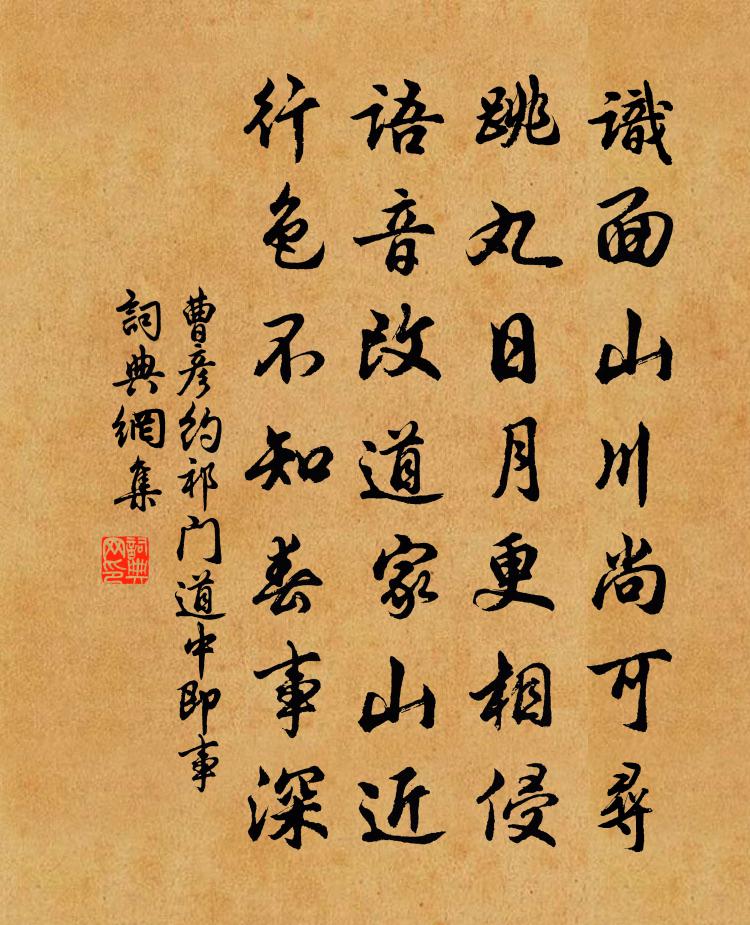 識面山川尚可尋
跳丸日月更相侵
語音改道家山近
行色不知春事深
曹彦約祁门道中即事
詞典網集
詞典网印